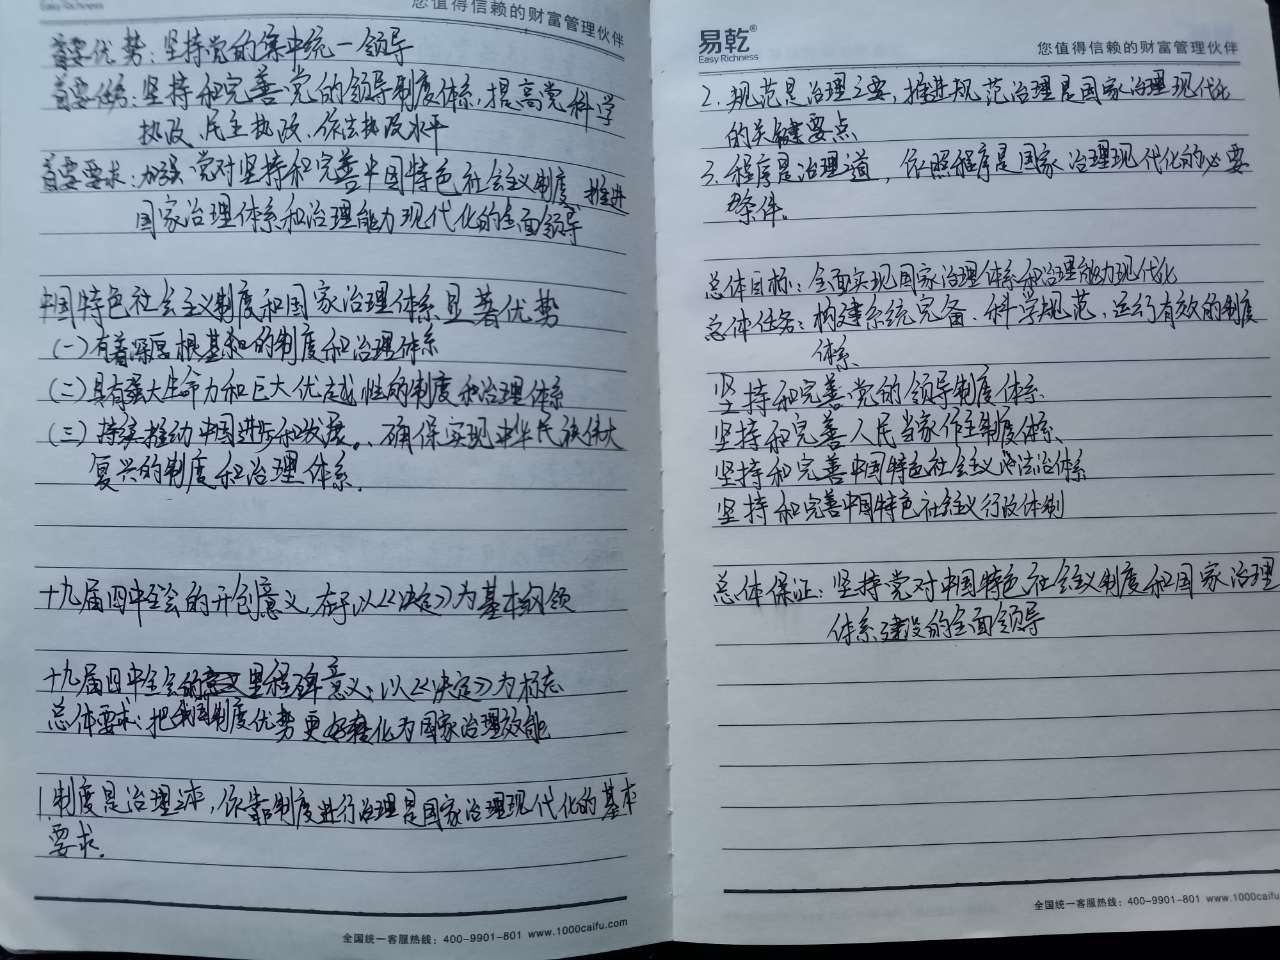 Easy Richness
您值得信赖的财富管理伙伴
首要优势:坚持党的集中统一领导
首要任务:坚持和完善党的领导制度体系,提高党科学
执政、民主执政、依法执政水平
首要要求:加强党对坚持和完善中国特色社会主义制度 推进
国家治理体系和治理能力现代化的全面领导
中国特色社会主义制度和国家治理体系显著优势
(一)有着深厚根基的制度和治理体系
(二)具有强大生命力和巨大优越性的制度和治理体系
(三)持续推动中国进步和发展、确保实现中华民族伟大
复兴的制度和治理体系.
十九届四中全会的开创意义,在于以《决定》为基本纲领
十九届四中全会的里程碑意义:以《决定》为标志
总体要求:把我国制度优势更好转化为国家治理效能
1.制度是治理之本,依靠制度进行治理是国家治理现代化的基本
要求.
全国统一客服热线:400-9901-801 www.1000caifu.com
易乾®
Easy Richness
您值得信赖的财富管理伙伴
2.规范是治理之要,推进规范治理是国家治理现代化
的关键要点
3.程序是治理道,依照程序是国家治理现代化的必要
条件.
总体目标:全面实现国家治理体系和治理能力现代化
总体任务:构建系统完备、科学规范、运行有效的制度
体系
坚持和完善党的领导制度体系
坚持和完善人民当家作主制度体系
坚持和完善中国特色社会主义法治体系
坚持和完善中国特色社会主义行政体制
总体保证:坚持党对中国特色社会主义制度和国家治理
体系建设的全面领导
全国统一客服热线:400-9901-801 www.1000caifu